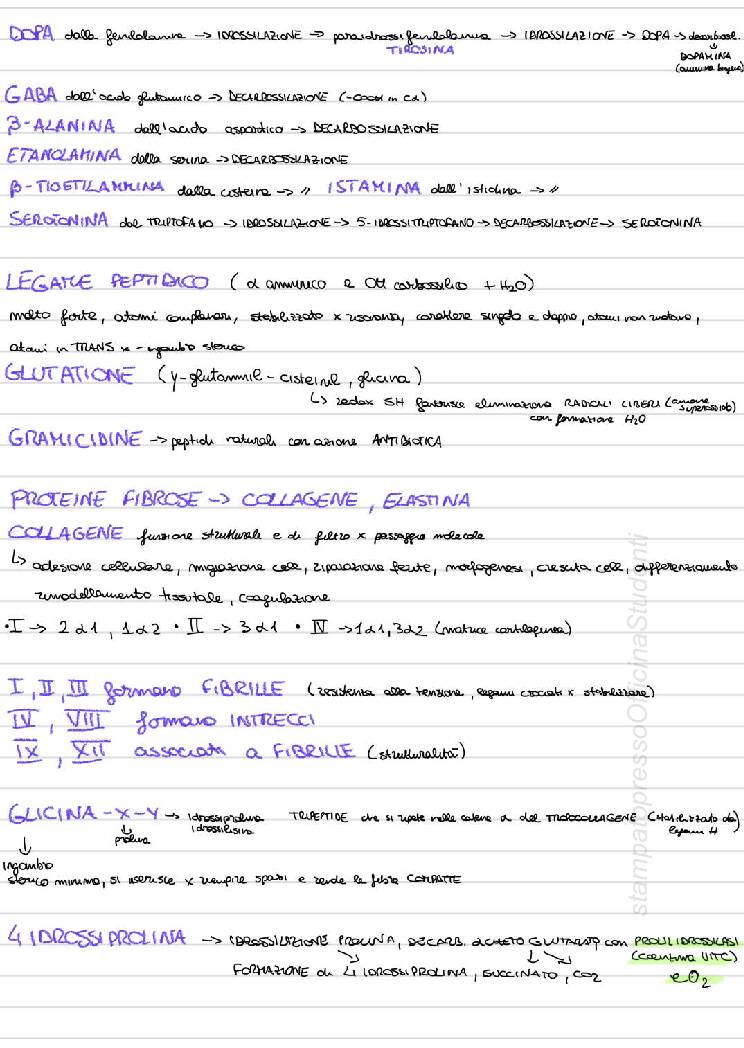 DOPA dalla fenilalanina → IDROSSILAZIONE → paraidrossifenilalanina → IDROSSILAZIONE → DOPA → decarbossil.
TIROSINA
DOPAMINA
(ammina biogena)
GABA dall'acido glutammico → DECARBOSSILAZIONE (-COOH in Cα)
β-ALANINA dall'acido aspartico → DECARBOSSILAZIONE
ETANOLAMINA dalla serina → DECARBOSSILAZIONE
β-TIOETILAMMINA dalla cisteina → // ISTAMINA dall'istidina → //
SEROTONINA dal TRIPTOFANO → IDROSSILAZIONE → 5-IDROSSITRIPTOFANO → DECARBOSSILAZIONE → SEROTONINA
LEGAME PEPTIDICO (α amminico e OH carbossilico + H2O)
molto forte, atomi complanari, stabilizzato x risonanza, carattere singolo e doppio, atomi non ruotano,
atomi in TRANS x - ingombro sterico
GLUTATIONE (γ-glutammil-cisteinil, glicina)
↳ redox SH favorisce eliminazione RADICALI LIBERI (anione superossido)
con formazione H2O
GRAMICIDINE → peptidi naturali con azione ANTIBIOTICA
PROTEINE FIBROSE → COLLAGENE, ELASTINA
COLLAGENE funzione strutturale e di filtro x passaggio molecole
↳ adesione cellulare, migrazione cell, riparazione ferite, morfogenesi, crescita cell, differenziamento
rimodellamento tissutale, coagulazione
• I → 2α1, 1α2 • II → 3α1 • IV → 1α1, 3α2 (matrice cartilaginea)
I, II, III formano FIBRILLE (resistenza alla tensione, legami crociati x stabilizzare)
IV, VIII formano INTRECCI
IX, XII associata a FIBRILLE (strutturalità)
GLICINA - X - Y → idrossiprolina TRIPEPTIDE che si ripete nelle catene α del TROPOCOLLAGENE (stabilizzato da
idrossilisina legami H)
prolina
ingombro
sterico minimo, si inserisce x riempire spazi e rende le fibre COMPATTE
4 IDROSSIPROLINA → IDROSSILAZIONE PROLINA, DECARB. αCHETO GLUTARATO con PROLILIDROSSILASI
(coenzima VIT C)
FORMAZIONE di 4 IDROSSIPROLINA, SUCCINATO, CO2 e O2
stampatopressoOfficinaStudenti